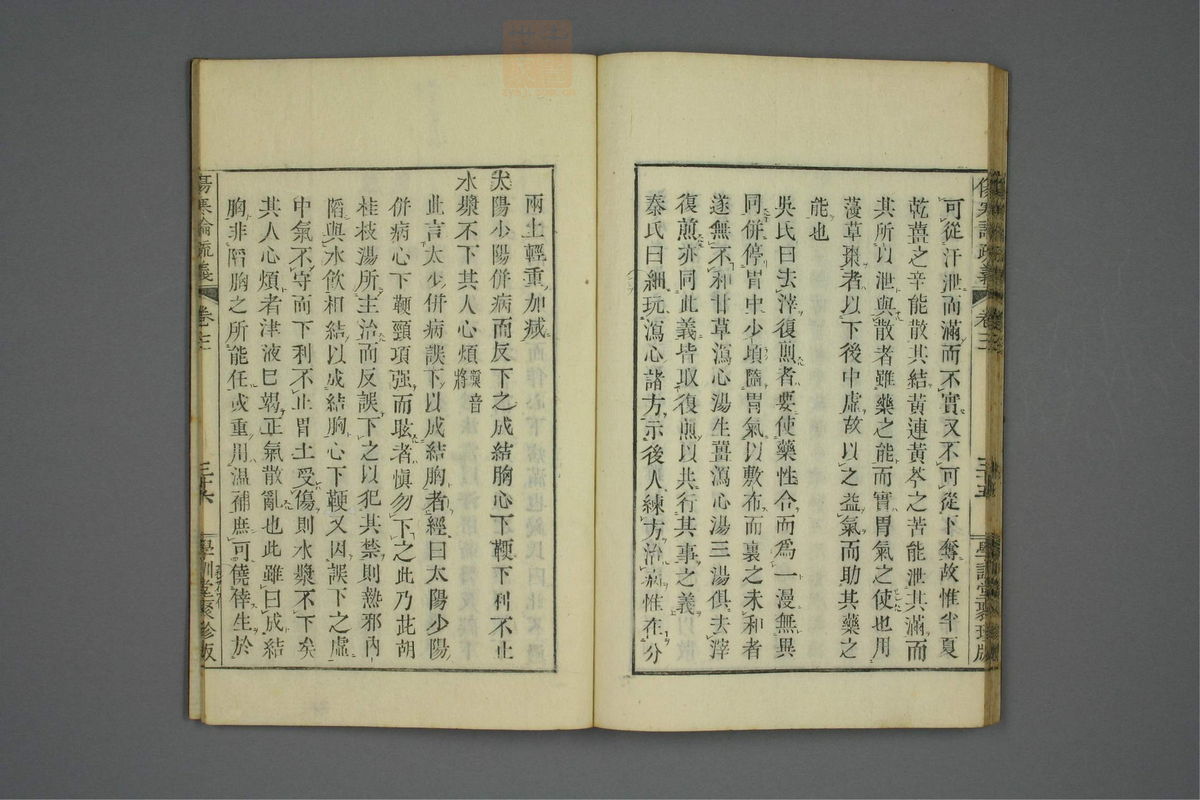 傷寒論疏義 卷三 三十五 學訓堂聚珍版
可從汗泄而滿而不實又不可從下奪故惟半夏
乾薑之辛能散其結黃連黃芩之苦能泄其滿而
其所以泄與散者雖藥之能而實胃氣之使也用
薓草棗者以下後中虛故以之益氣而助其藥之
能也
吳氏曰去滓復煎者要使藥性合而爲一漫無異
同併停胃中少頃隨胃氣以敷布而裏之未和者
遂無不和甘草瀉心湯生薑瀉心湯三湯俱去滓
復煎亦同此義皆取復煎以共行其事之義
秦氏曰細玩瀉心諸方示後人練方治病惟在分
兩上輕重加減
太陽少陽併病而反下之成結胸心下鞕下利不止
水漿不下其人心煩 漿音將
此言太少併病誤下以成結胸者經曰太陽少陽
併病心下鞕頸項强而眩者愼勿下之此乃茈胡
桂枝湯所主治而反誤下之以犯其禁則熱邪內
陷與水飮相結以成結胸心下鞕又因誤下之虛
中氣不守而下利不止胃土受傷則水漿不下矣
其人心煩者津液已竭正氣散亂也此雖曰成結
胸非陷胸之所能任或重用溫補庶可僥倖生於
傷寒論疏義 卷三 三十六 學訓堂聚珍版